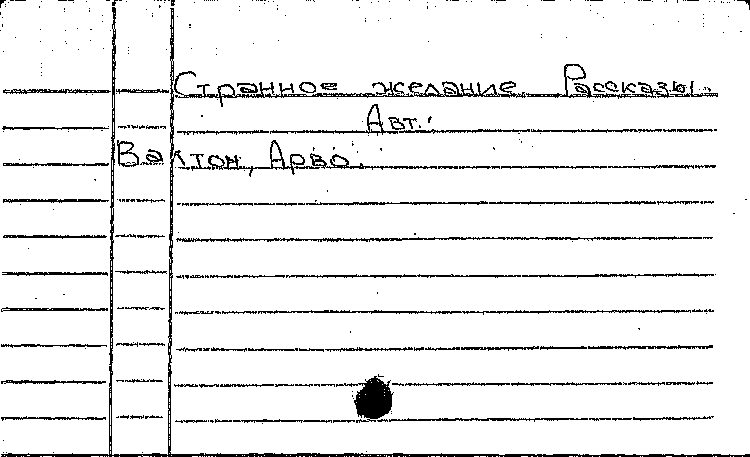 Странное желание. Рассказы.
Авт.:
Валтон, Арво.